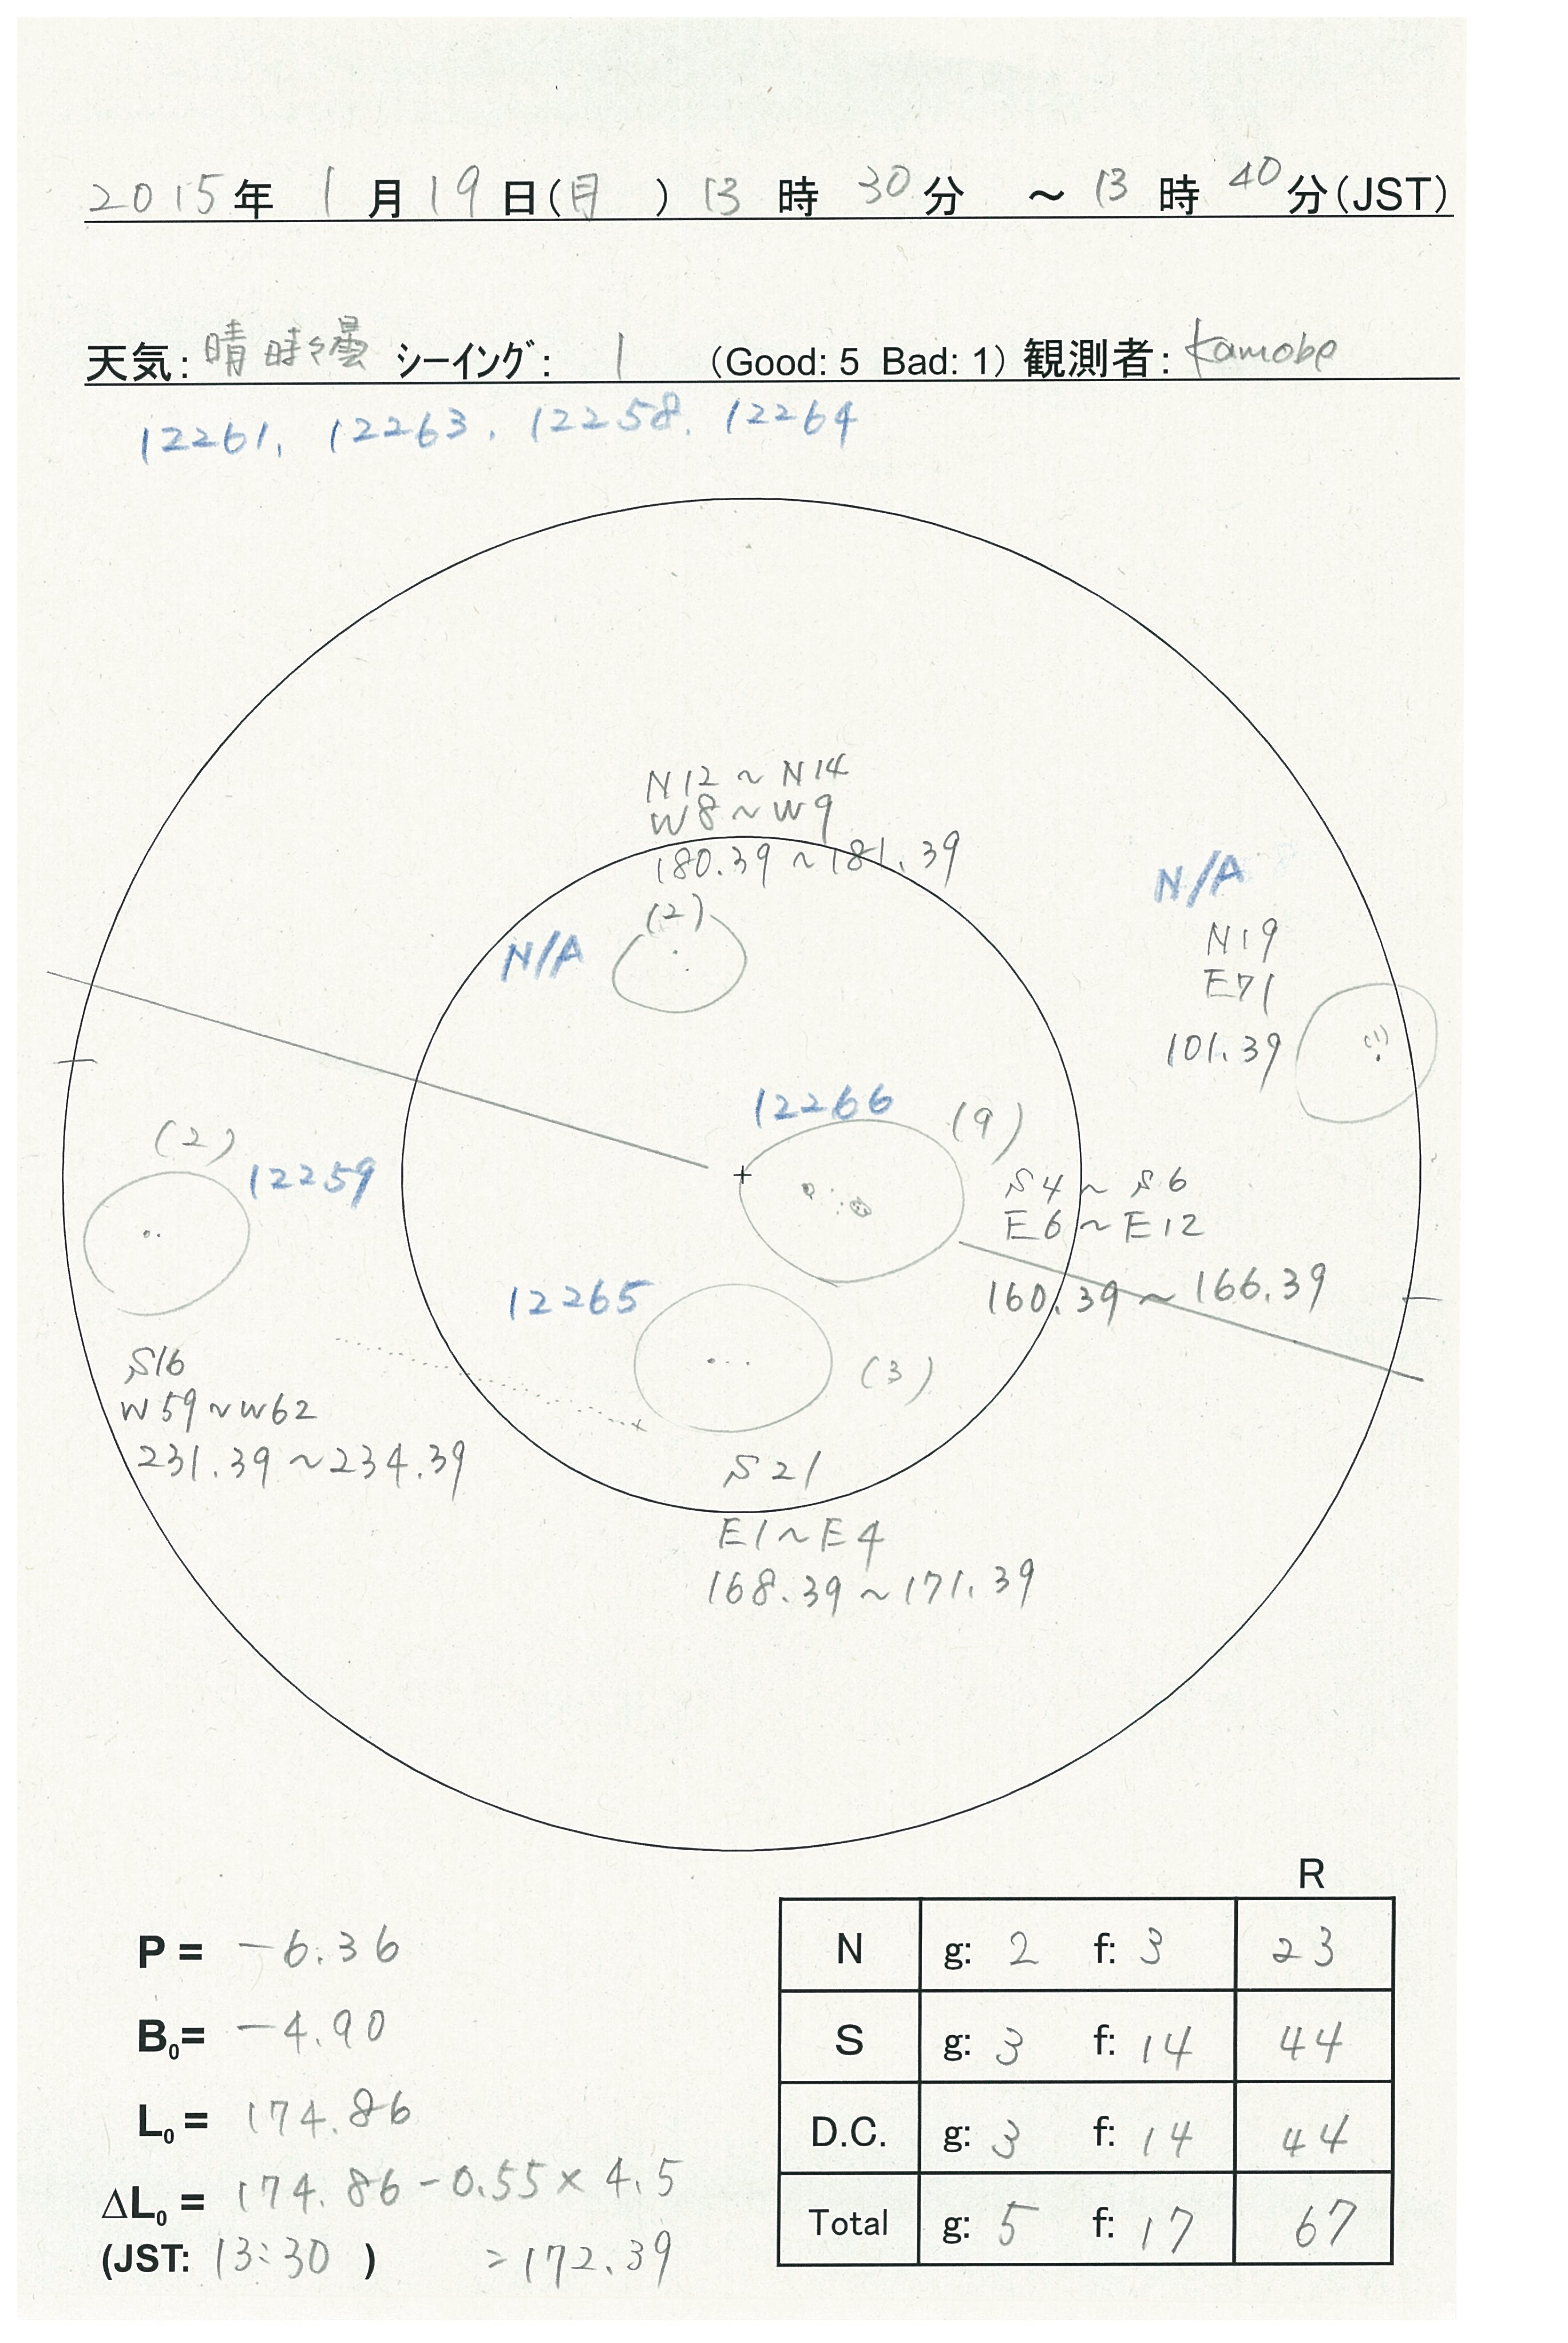 2015年 1月19日(月 ) 13 時 30分 ～13 時 40分(JST)
天気: 晴時々曇 シーイング: 1 (Good: 5 Bad: 1) 観測者: Kamobe
12261, 12263, 12258, 12264
N12～N14
W8～W9
180.39～181.39
(2)
N/A
N/A
N19
E71
101.39
(1)
12266
(9)
S4～S6
E6～E12
160.39～166.39
(2)
12259
S16
W59～W62
231.39～234.39
12265
(3)
S21
E1～E4
168.39～171.39
P = -6.36
B₀= -4.90
L₀ = 174.86
ΔL₀ = 174.86-0.55×4.5
(JST: 13:30 ) =172.39
R
N g: 2 f: 3 23
S g: 3 f: 14 44
D.C. g: 3 f: 14 44
Total g: 5 f: 17 67